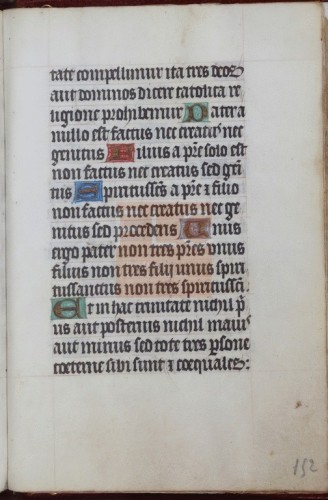 tate compellimur ita tres deos
aut dominos dicere catolica re
ligione prohibemur Pater a
nullo est factus nec creatus nec
genitus Filius a pre solo est
non factus nec creatus sed geni
tus Spiritusscs a pre ⁊ filio
non factus nec creatus nec ge
nitus sed procedens Unus
ergo pater non tres pres unus
filius non tres filij unus spiri
tussanctus non tres spiritussci
Et in hac trinitate nichil pri
us aut posterius nichil maius
aut minus sed tote tres psone
coeterne sibi sunt ⁊ coequales:
152